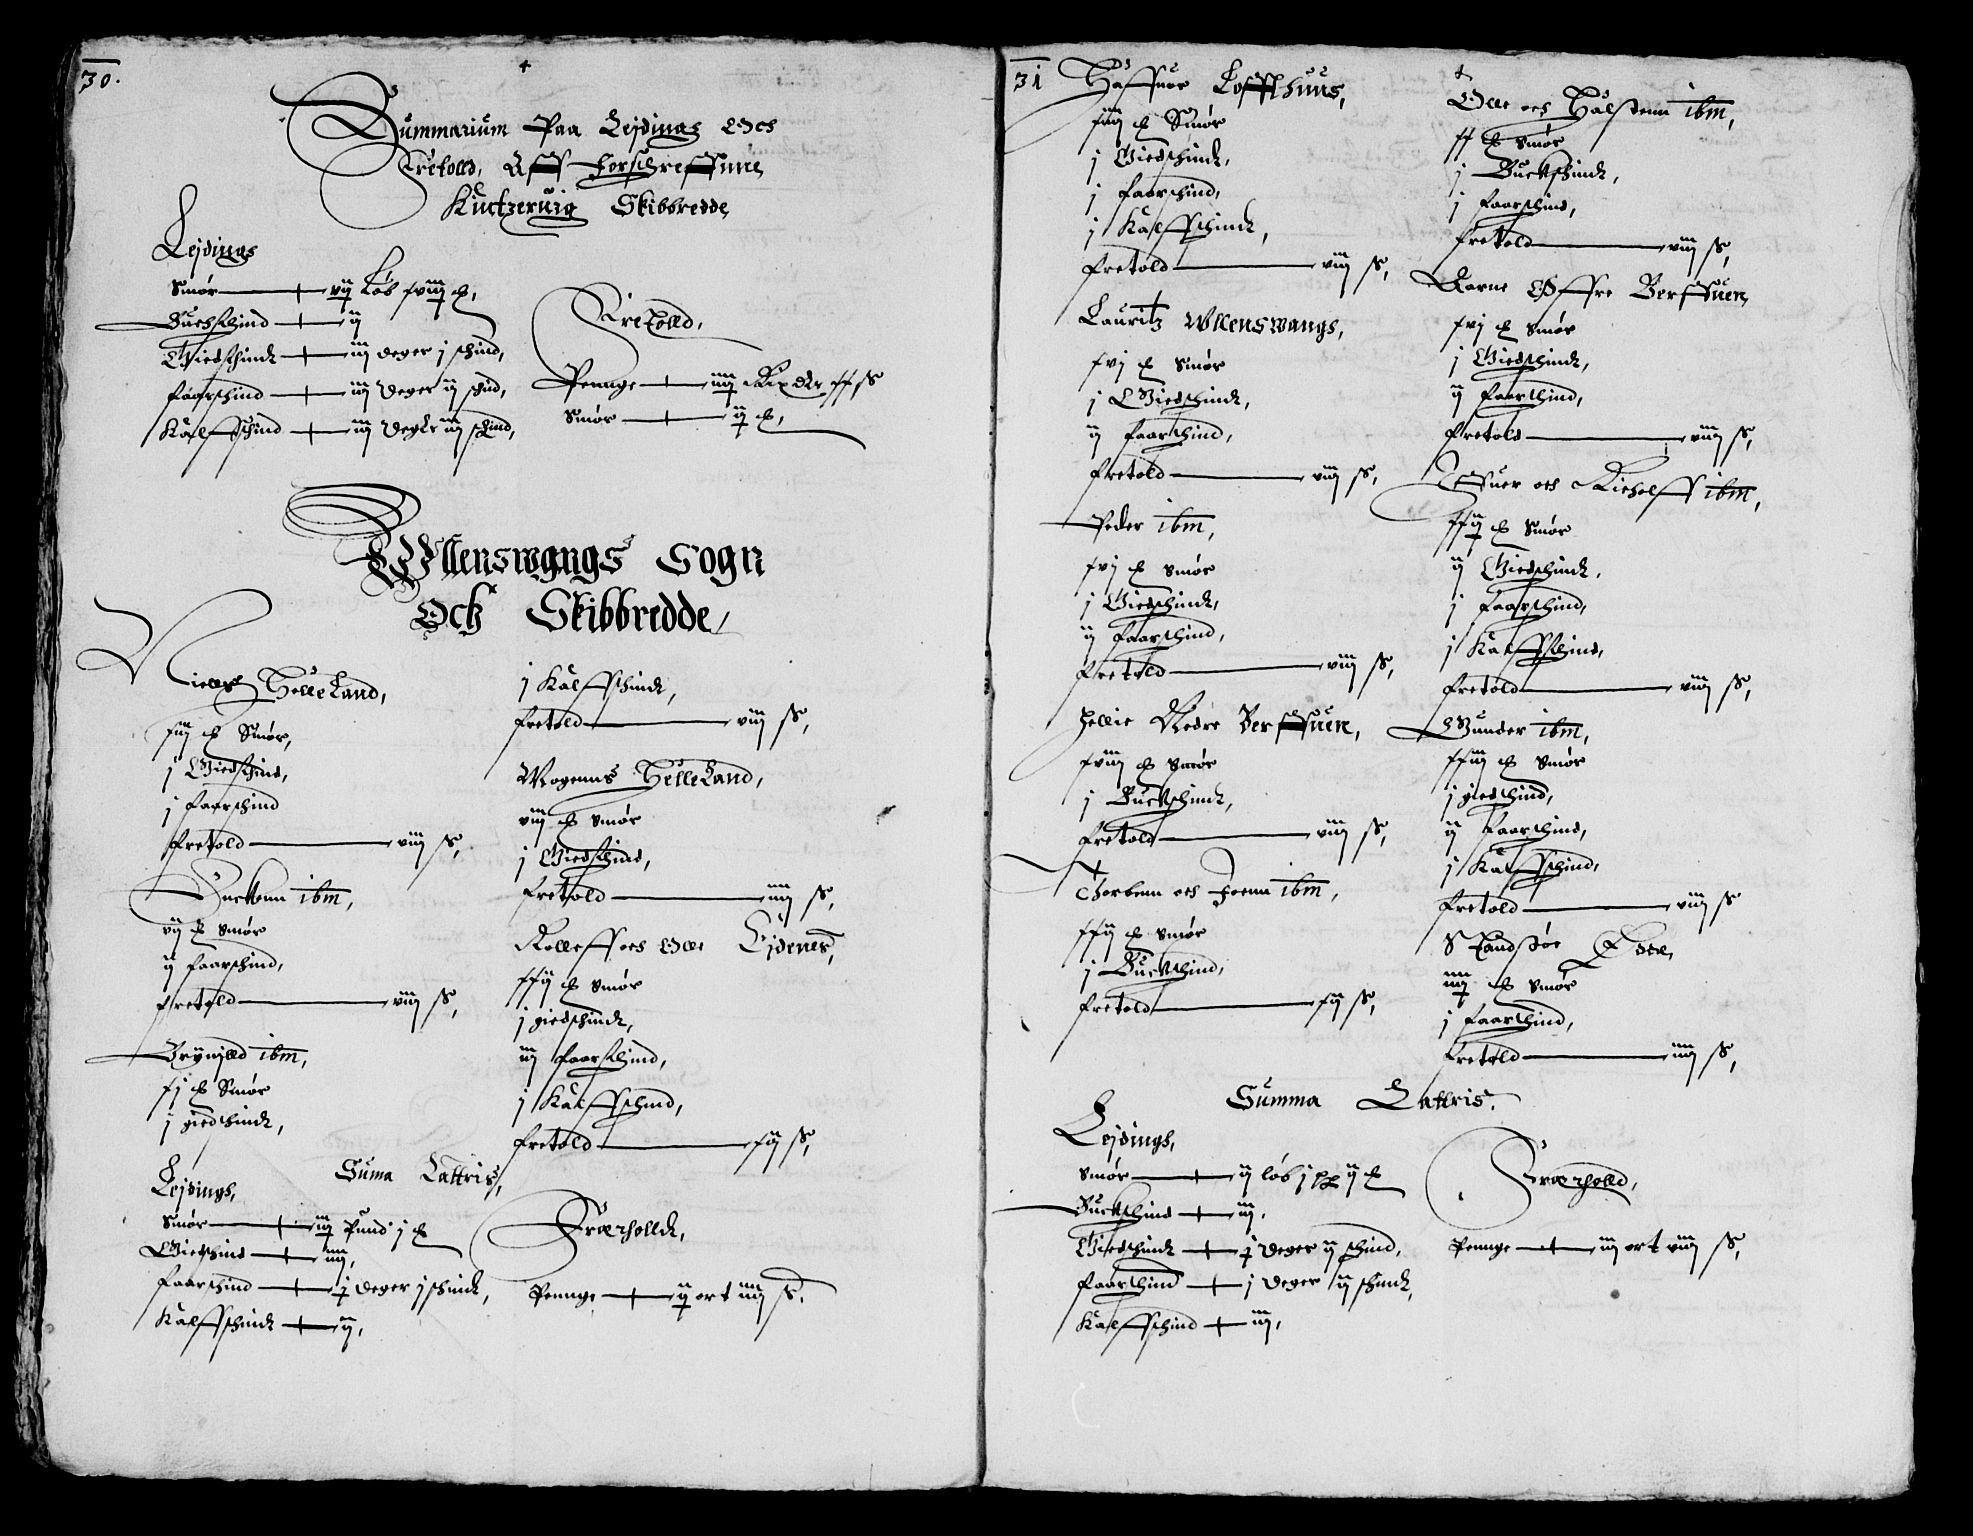 30.
Summarium Paa Lejdings Och
Fretolld, Aff forschreffune
Kintzeruig Skibbredde
Lejdings
Smør vij Løb xviij
Buckschind ij
Giedschind iij deger j schind,
faarschind iij deger ij schind,
Kalffschind iij deger iij schind,
Fretolld,
Pennge iiij Rix dlr xx ß
Smør ij
Wllenswangs Sogn
Och Skibbredde,
Niells Helleland,
xiij Smør,
j Giedschind,
j faarschind
fretold viij ß,
ibm,
vij Smør
ij faarschind,
fretold viij ß,
Brynild ibm,
xj Smør
j giedschind,
j Kalffschind,
fretold viij ß,
Mogenns Helleland,
viij Smør
j Giedschind,
fretold iiij ß,
Rolleff och Olle Ejdenes,
xxij Smør
j giedschind,
iij faarschind,
j Kalffschind,
fretold xij ß,
Suma Lattris,
Lejdings,
Smør iij Pund j
Giedschind iiij,
faarschind j deger j schind,
Kalffschind ij,
Fraertolld,
Pennge ij ort iiij ß.
31
Haffuor Loffthuus,
xiij Smør
j Giedschind,
j faarschind,
j Kalffschind,
fretold viij ß,
Lauritz Wllenswangs,
xvj Smør
j Giedschind,
ij faarschind,
fretold viij ß,
Peder ibm,
xvj Smør
j Giedschind,
ij faarschind,
fretold viij ß,
Hellie Nedre Berffuen,
xviij Smør
j Buckschind,
fretold viij ß,
Torbenn och ibm,
xxij Smør
j Buckschind,
fretold xij ß,
Olle och Halstenn ibm,
xx Smør
j Buckschind,
j faarschind,
fretold viij ß,
Aarne Øffre Berffuen,
xvj Smør
j Giedschind,
ij faarschind,
fretold viij ß,
Iffuer och Richolff ibm,
xxij Smør
ij Giedschind,
j faarschind,
j Kalffschind,
fretold viij ß,
Gunder ibm,
xxiij Smør
j giedschind,
ij faarschind,
j Kalffschind,
fretold viij ß
iiij Smør
j faarschind,
fretold iiij ß,
Summa Lattris.
Lejdings,
Smør ij løb j pd ij
Buckschind iij,
Giedschind j deger ij schind,
faarschind j deger ij schind,
Kalffschind iij,
Fraertolld,
Pennge iij ort viij ß,